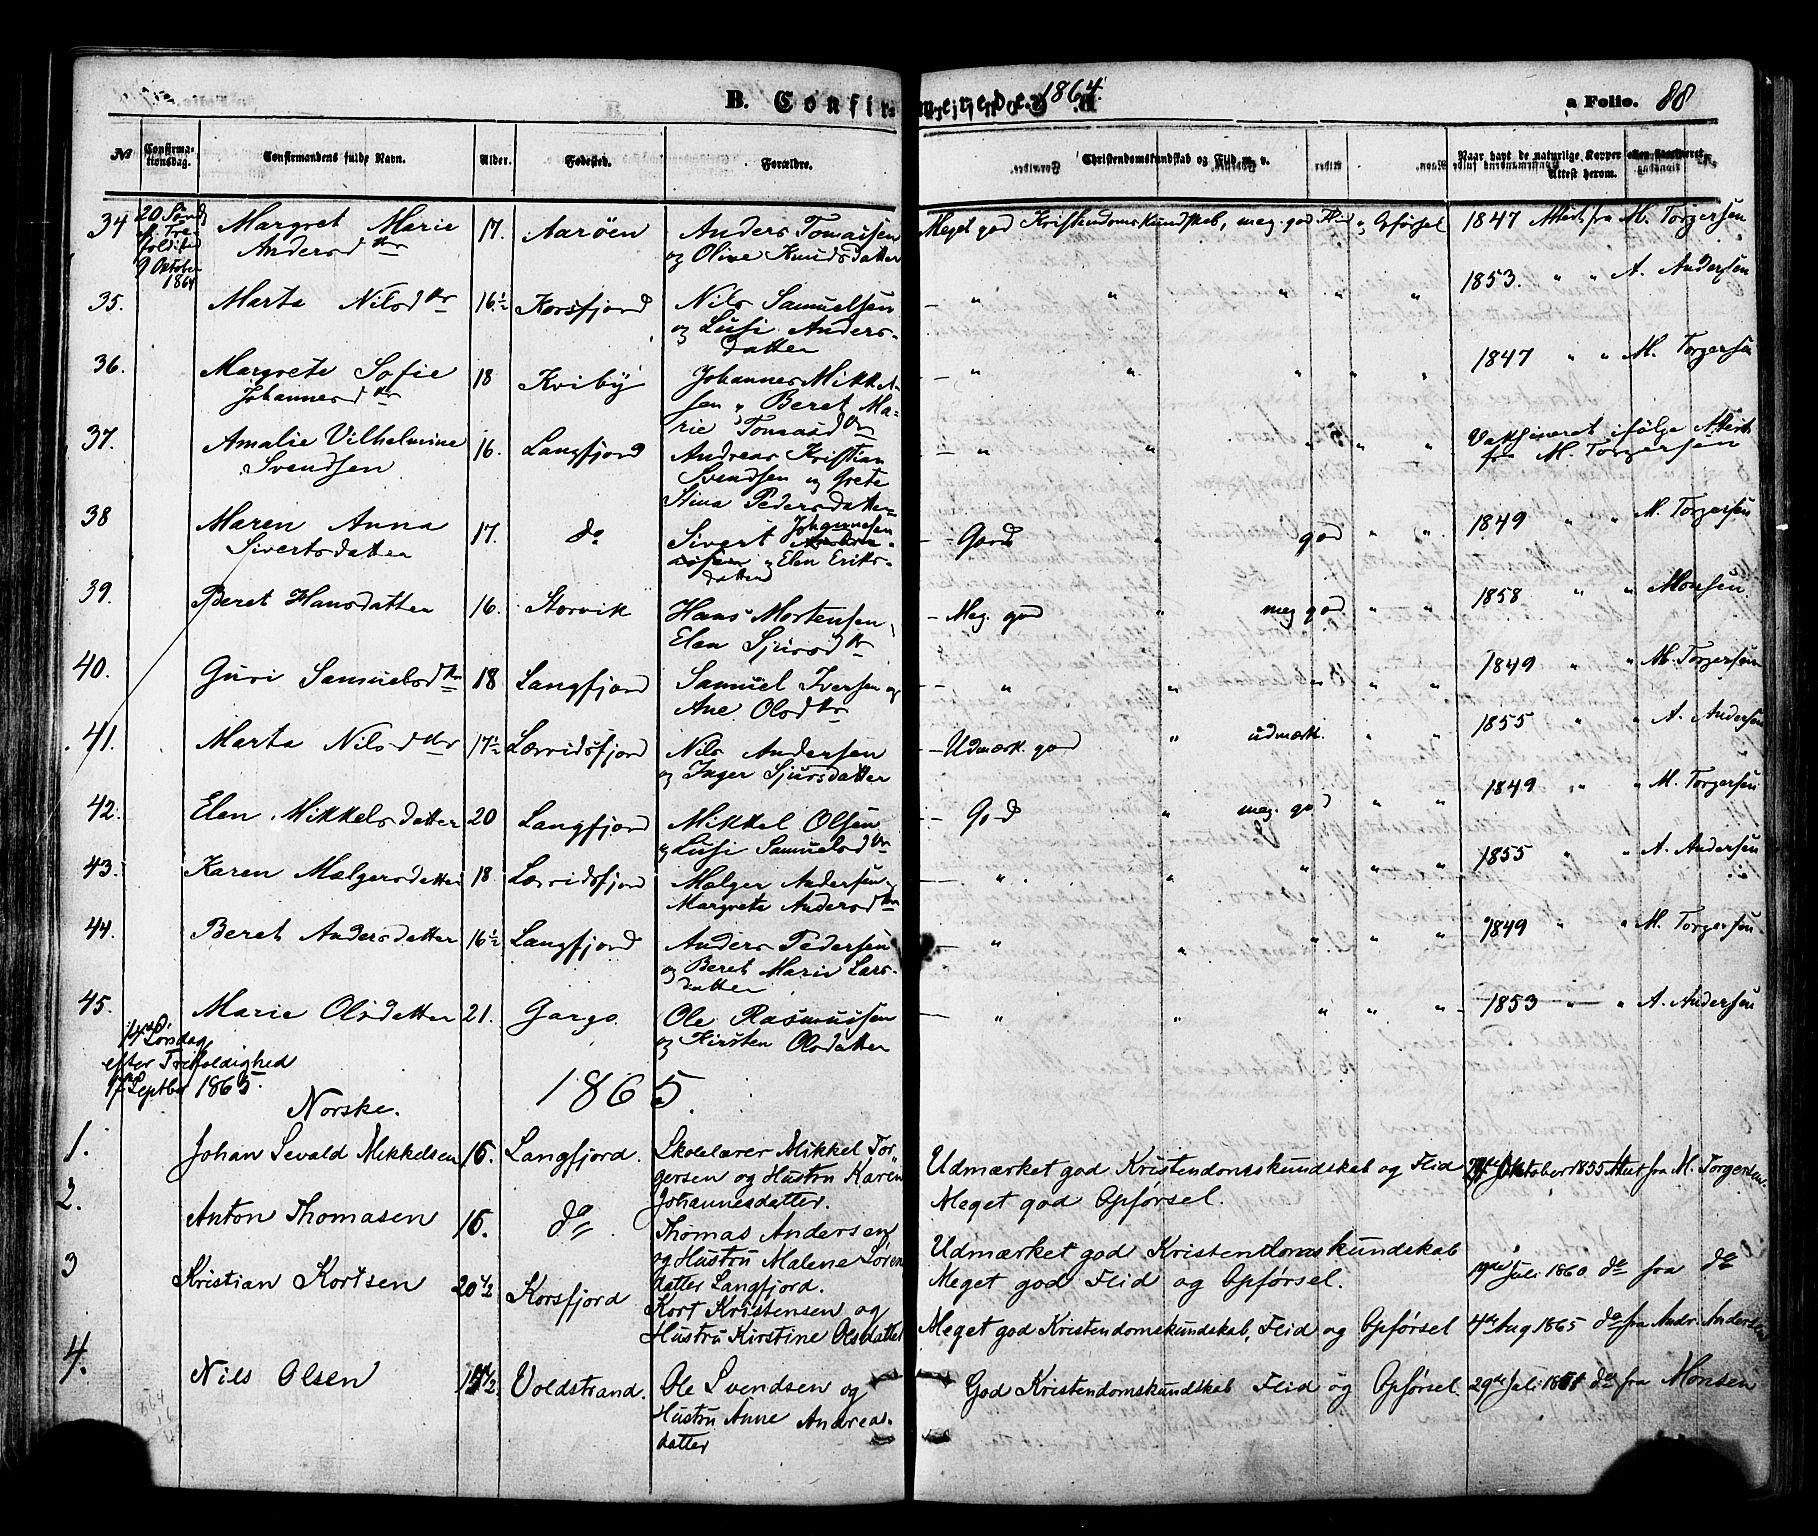 B. Confirmerede. 1864. a Folio. 88
№ Confirmationsdag. Confirmandens fulde Navn. Alder. Fødested. Forældre. Christendomskundskab og Flid m. v. Naar havt de naturlige Kopper eller vaccineret. Attest herom.
34 20 Sönd e. Tre foldited 9 Oktober 1864 Margret Marie Andersdtr 17. Aaröen Anders Tomassen og Olive Knudsdatter Meget god Kristendomskundskab, meg. god Flid og Opförsel 1847 Attest fra M. Torgersen
35. Marta Nilsdtr 16½ Korsfjord Nils Samuelsen og Lusi Andersdatter – " " " " " 1853. " " A. Andersen
36. Margrete Sofie Johannesdtr 18 Kviby Johannes Mikkelsen " Beret Marie Tomasdtr – " " " " " 1847 " " M. Torgersen
37. Amalie Vilhelmine Svendsen 16. Langfjord Andreas Kristian Svendsen og Grete Stina Pedersdatter – " " " " " Vaksineret ifölge Attest fra M. Torgersen
38 Maren Anna Sivertsdatter 17. do Sivert Johannesen og Elen Eriksdatter – God " god " " 1849 " " M. Torgersen
39. Beret Hansdatter 16. Storvik Hans Mortensen Elen Sjursdtr – Meg. god " meg god " " 1858 " " Monsen
40. Guri Samuelsdtr 18 Langfjord Samuel Iversen og Ane Olsdtr – " " " " " 1849 " " M. Torgersen
41. Marta Nilsdtr 17½ Lærridsfjord Nils Andersen og Inger Sjursdatter – Udmærk. god " udmærk. " " 1855 " " A. Andersen
42. Elen Mikkelsdatter 20 Langfjord Mikkel Olsen og Lusi Samuelsdtr – God " meg. god " " 1849 " " M. Torgersen
43. Karen Malgersdatter 18. Lærridsfjord Malger Andersen og Margrete Andersdtr – " " " " " 1855 " " A. Andersen
44. Beret Andersdatter 16½ Langfjord Anders Pedersen og Beret Marie Larsdatter – " " " " " 1849 " " M. Torgersen
45. Marie Olsdatter 21. Gargo Ole Rasmussen og Kirsten Olsdatter " " " " " 1853 " " A. Andersen
14de Söndag
efter Trefoldighed
17de Septbr 1865. 1865.
Norske.
1. Johan Sevald Mikkelsen 15. Langfjord. Skolelærer Mikkel Torgersen og Hustru Karen Johannesdatter. Udmærket god Kristendomskundskab og Flid Meget god Opförsel. Oktober 1855 Attest fra M. Torgersen.
2. Anton Thomasen 15. do Thomas Andersen og Hustru Malene Sörendatter Langfjord. Udmærket god Kristendomskundskab Meget god Flid og Opförsel. Juli 1860 do fra do
3 Kristian Kortsen 20½ Korsfjord Kort Kristensen og Hustru Kirstine Olsdatter Meget god Kristendomskundskab, Flid og Opförsel 4de Aug 1865 do fra Andr. Andersen
4. Nils Olsen Voldstrand. Ole Svendsen og Hustru Anne Andreasdatter God Kristendomskundskab Flid og Opförsel. 29de Juli do fra Monsen